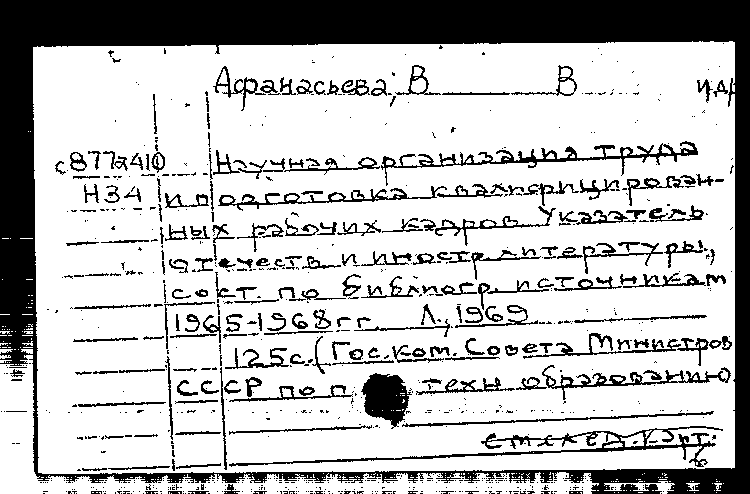 Афанасьева, В В и др
с877а410 Научная организация труда
Н34 и подготовка квалифицирован-
ных рабочих кадров Указатель
отечеств и иностр литературы,
сост. по библиогр. источникам
1965-1968гг. Л., 1969
125с. (Гос.ком. Совета Министров
СССР по п техн образованию
см.след.карт.